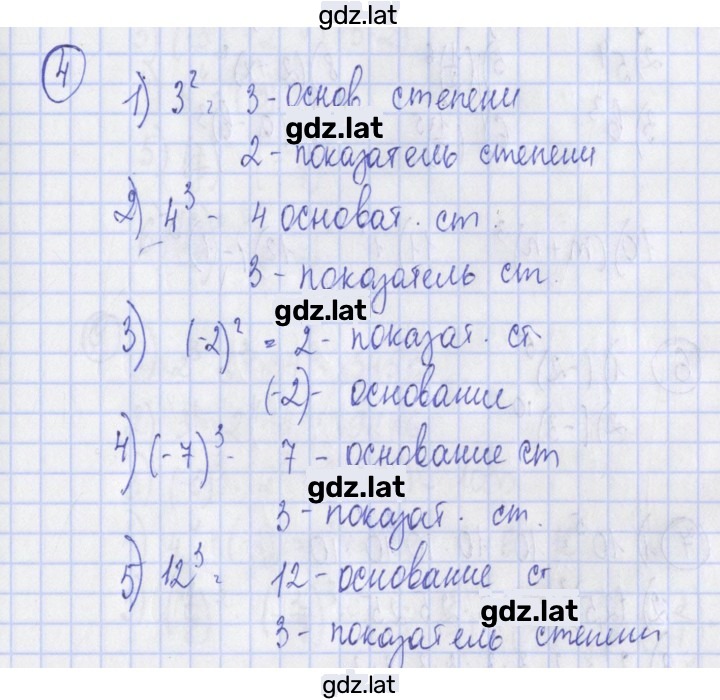 gdz.lat
4
1) 3² = 3 - основ степени
gdz.lat
2 - показатель степени
2) 4³ - 4 основат. ст.
3 - показатель ст.
gdz.lat
3) (-2)² = 2 - показат. ст
(-2) - основание
4) (-7)³ - 7 - основание ст
gdz.lat
3 - показат. ст.
5) 12³ = 12 - основание ст
gdz.lat
3 - показатель степени
gdz.lat